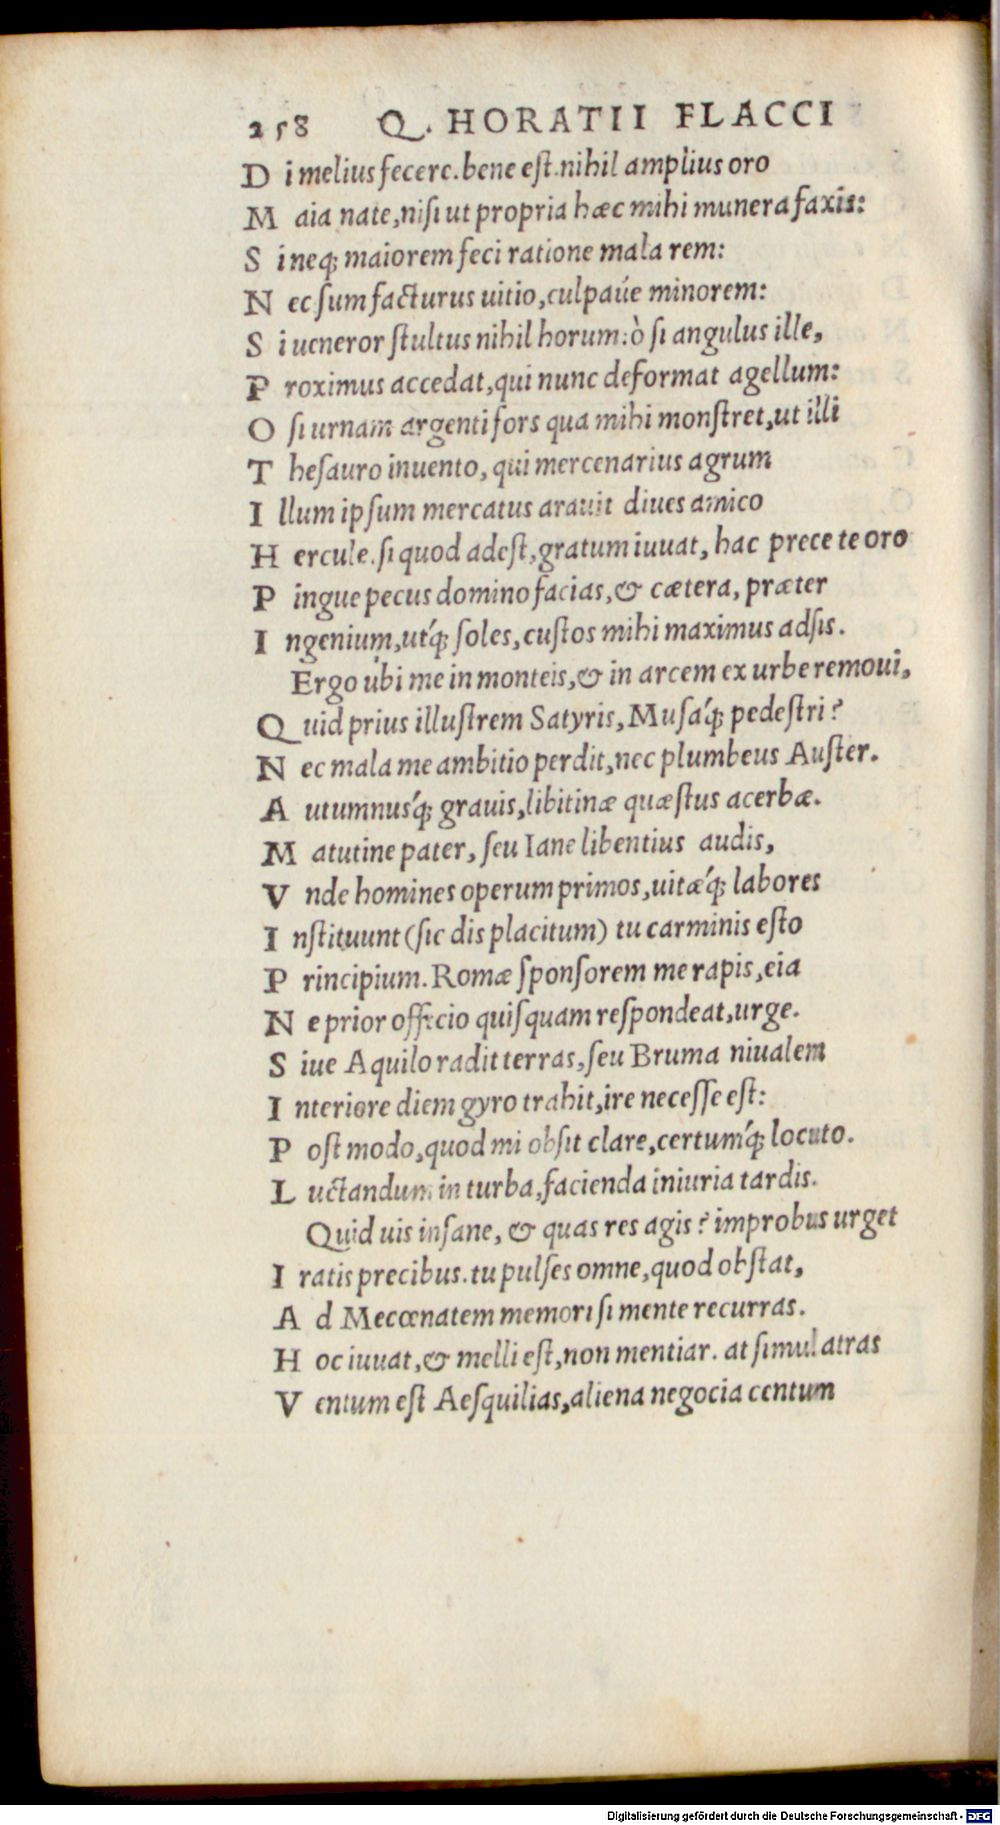 258 Q. HORATII FLACCI
D i melius fecere. bene eſt. nihil amplius oro
M aia nate, niſi ut propria hæc mihi munera faxis:
S i neq; maiorem feci ratione mala rem:
N ec ſum facturus uitio, culpaúe minorem:
S i ueneror ſtultus nihil horum: ò ſi angulus ille,
P roximus accedat, qui nunc deformat agellum:
O ſi urnam argenti fors qua mihi monſtret, ut illi
T heſauro inuento, qui mercenarius agrum
I llum ipſum mercatus arauit diues amico
H ercule. ſi quod adeſt, gratum iuuat, hac prece te oro
P ingue pecus domino facias, & cætera, præter
I ngenium, utq́; ſoles, cuſtos mihi maximus adſis.
Ergo ubi me in monteis, & in arcem ex urbe remoui,
Q uid prius illuſtrem Satyris, Muſaq́; pedeſtri?
N ec mala me ambitio perdit, nec plumbeus Auſter.
A utumnusq́; grauis, libitinæ quæſtus acerbæ.
M atutine pater, ſeu Iane libentius audis,
V nde homines operum primos, uitæq́; labores
I nſtituunt (ſic dis placitum) tu carminis eſto
P rincipium. Romæ ſponſorem me rapis, eia
N e prior officio quiſquam reſpondeat, urge.
S iue Aquilo radit terras, ſeu Bruma niualem
I nteriore diem gyro trahit, ire neceſſe eſt:
P oſt modo, quod mi obſit clare, certumq́; locuto.
L uctandum in turba, facienda iniuria tardis.
Quid uis inſane, & quas res agis? improbus urget
I ratis precibus. tu pulſes omne, quod obſtat,
A d Mecœnatem memori ſi mente recurras.
H oc iuuat, & melli eſt, non mentiar. at ſimul atras
V entum eſt Aeſquilias, aliena negocia centum
Digitalisierung gefördert durch die Deutsche Forschungsgemeinschaft - DFG